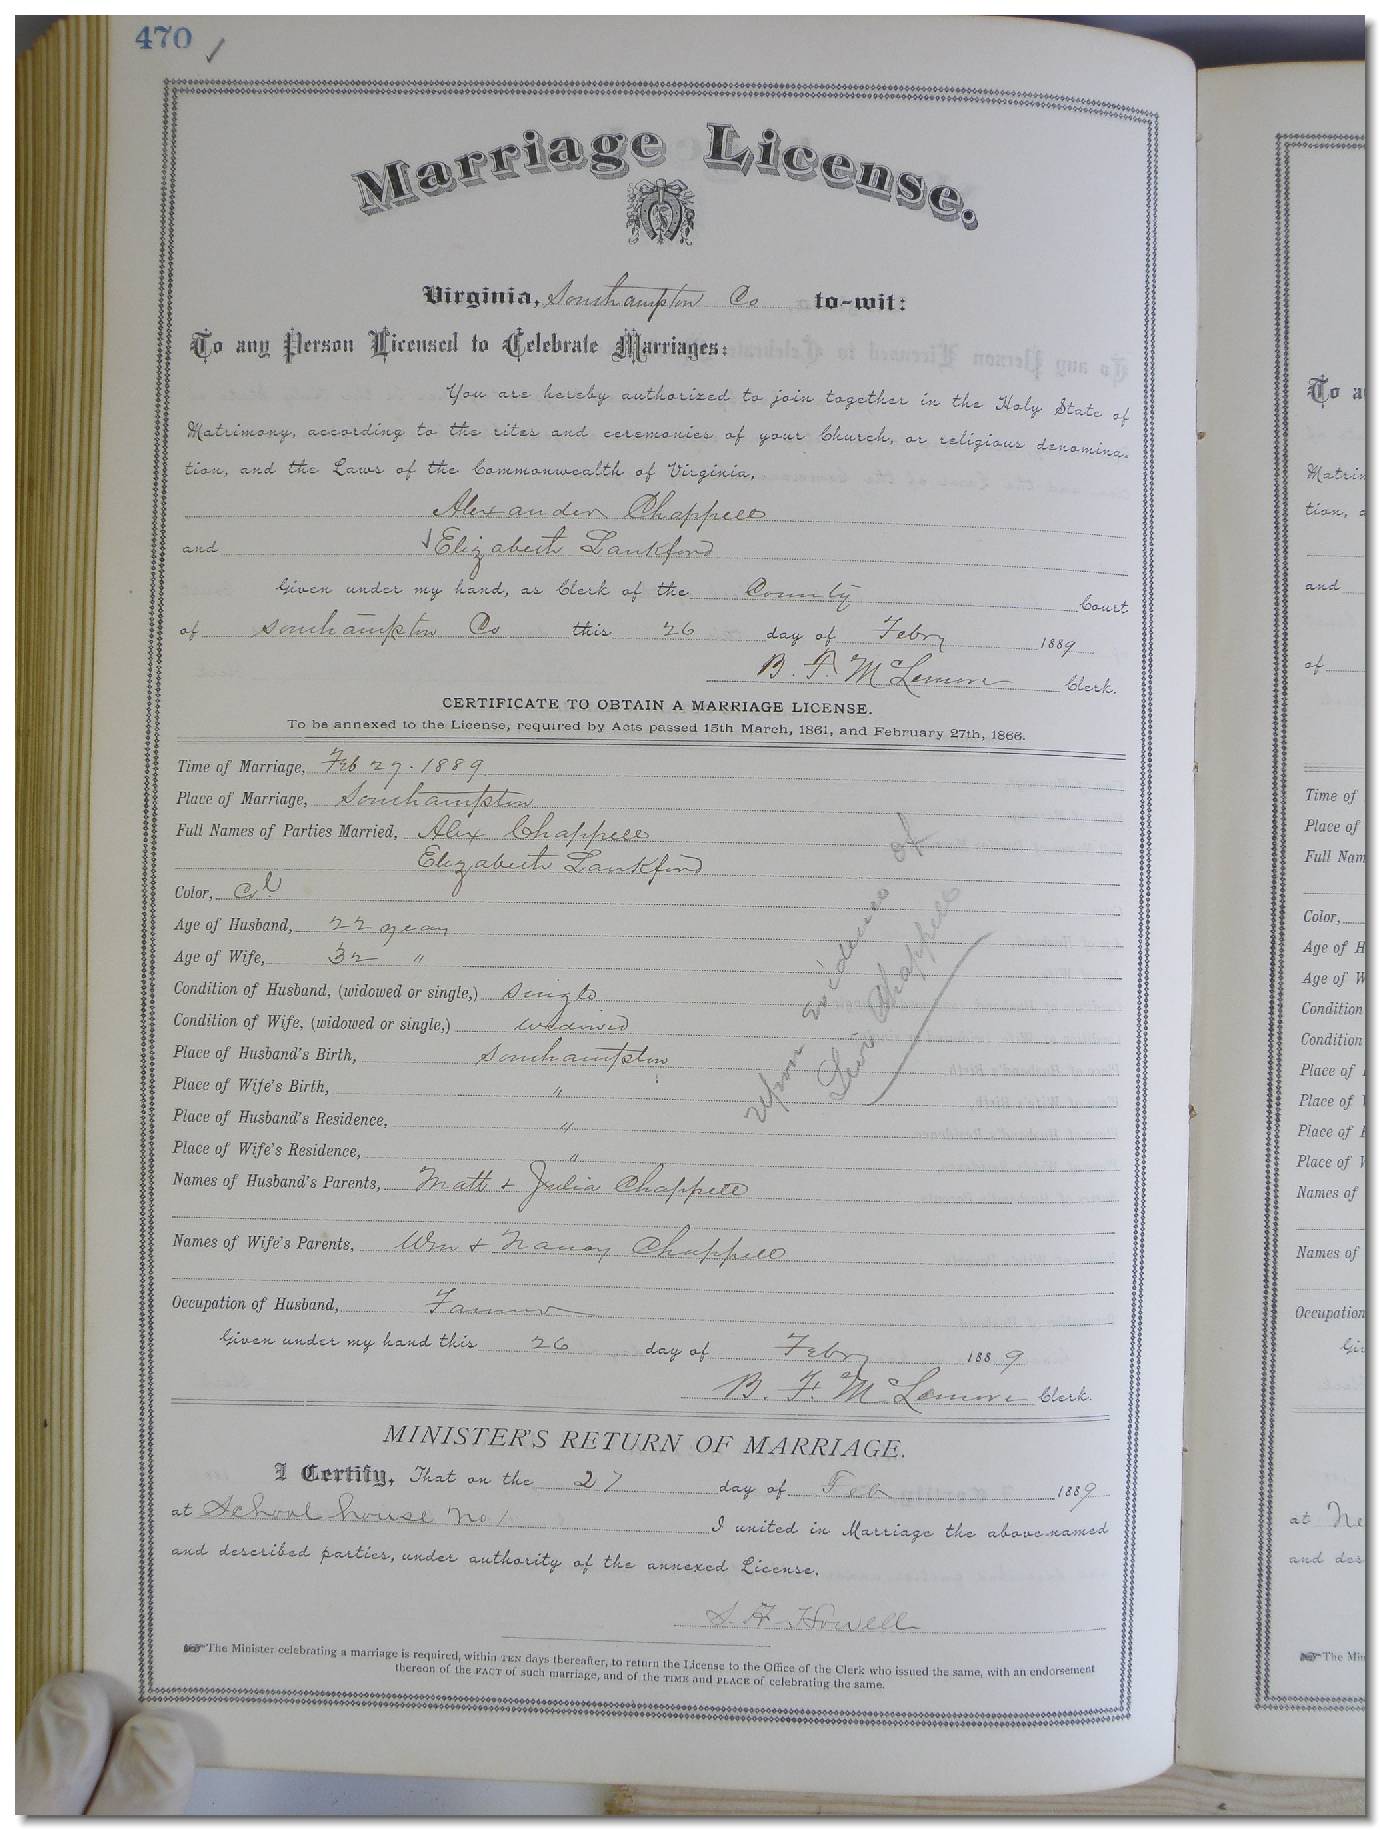 470 ✓
Marriage License.
Virginia, Southampton Co to-wit:
To any Person Licensed to Celebrate Marriages:
You are hereby authorized to join together in the Holy State of
Matrimony, according to the rites and ceremonies of your Church, or religious denomina-
tion, and the Laws of the Commonwealth of Virginia,
Alexander Chappell
and Elizabeth Lankford
Given under my hand, as Clerk of the County Court
of Southampton Co this 26 day of Febry 1889
B. F. McLemore Clerk.
CERTIFICATE TO OBTAIN A MARRIAGE LICENSE.
To be annexed to the License, required by Acts passed 15th March, 1861, and February 27th, 1866.
Time of Marriage, Feb 27 - 1889
Place of Marriage, Southampton
Full Names of Parties Married, Alex Chappell
Elizabeth Lankford
Color, Cld
Age of Husband, 22 years
Age of Wife, 32 "
Condition of Husband, (widowed or single,) single
Condition of Wife, (widowed or single,) widowed
Place of Husband's Birth, Southampton
Place of Wife's Birth, "
Place of Husband's Residence, "
Place of Wife's Residence, "
Names of Husband's Parents, Matt & Julia Chappell
Names of Wife's Parents, Wm & Nancy Chappell
Occupation of Husband, Farmer
Given under my hand this 26 day of Febry 1889
B. F. McLemore Clerk.
upon evidence of
Chappell
MINISTER'S RETURN OF MARRIAGE.
I Certify, That on the 27 day of Feb 1889
at School house No 1 I united in Marriage the above-named
and described parties, under authority of the annexed License.
S. H. Howell
The Minister celebrating a marriage is required, within TEN days thereafter, to return the License to the Office of the Clerk who issued the same, with an endorsement
thereon of the FACT of such marriage, and of the TIME and PLACE of celebrating the same.
To a
Matrim
tion, a
and
of
Time of
Place of
Full Nam
Color,
Age of H
Age of W
Condition
Condition
Place of
Place of
Place of
Place of
Names of
Names of
Occupation
Gi
at Ne
and des
The Min